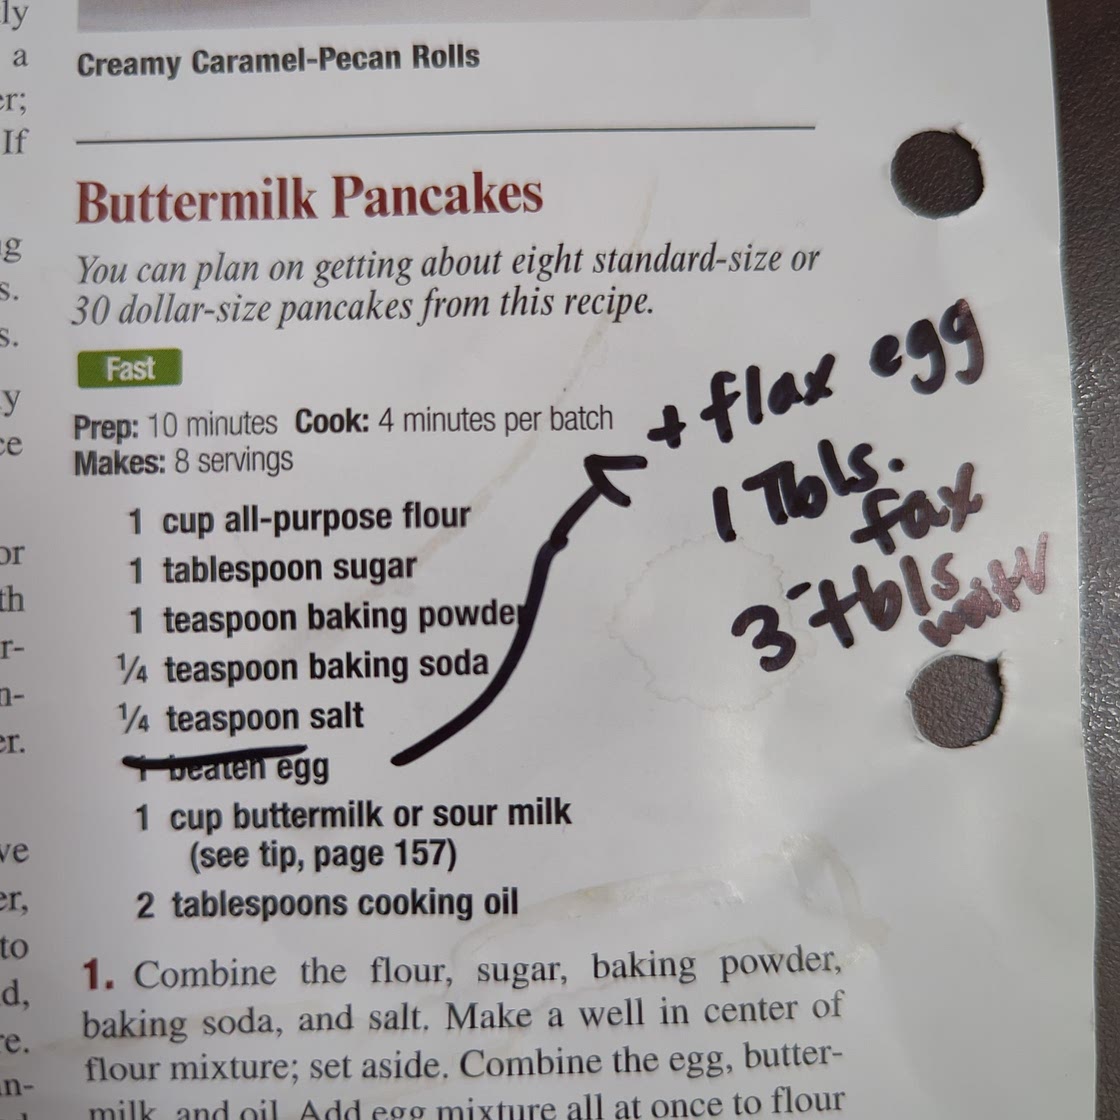 ly
a
er;
If
g
s.
s.
y
ce
or
th
r-
n-
er.
ve
er,
to
d,
re.
n-
Creamy Caramel-Pecan Rolls
Buttermilk Pancakes
You can plan on getting about eight standard-size or
30 dollar-size pancakes from this recipe.
Fast
Prep: 10 minutes Cook: 4 minutes per batch
Makes: 8 servings
1 cup all-purpose flour
1 tablespoon sugar
1 teaspoon baking powder
¼ teaspoon baking soda
¼ teaspoon salt
1 beaten egg
1 cup buttermilk or sour milk
(see tip, page 157)
2 tablespoons cooking oil
1. Combine the flour, sugar, baking powder,
baking soda, and salt. Make a well in center of
flour mixture; set aside. Combine the egg, butter-
milk, and oil. Add egg mixture all at once to flour
+ flax egg
1 Tbls.
fax
3 tbls.
water